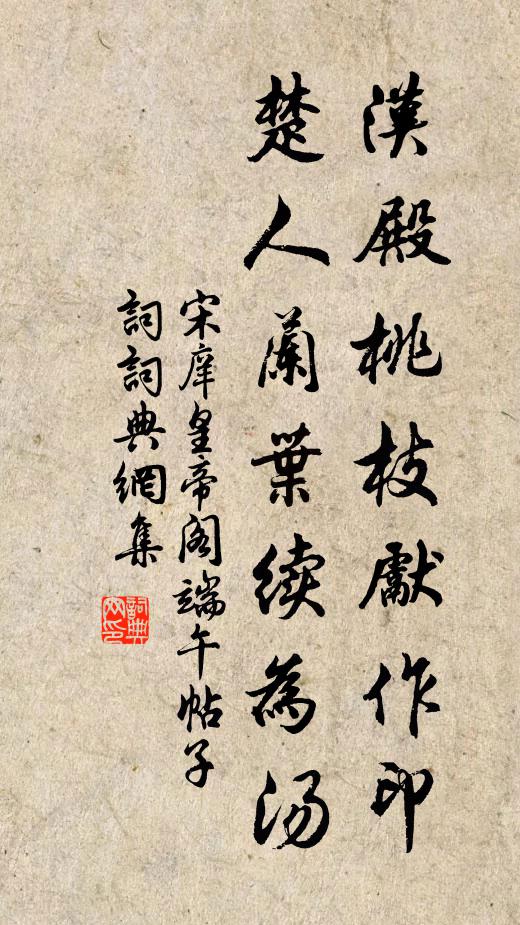 漢殿桃枝獻作印
楚人蘭葉續為湯
宋庠皇帝閣端午帖子
詞詞典網集
詞典網印